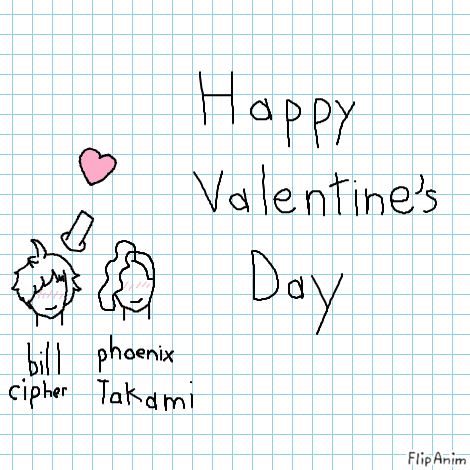 Happy
Valentine's
Day
bill
cipher
phoenix
Takami
FlipAnim